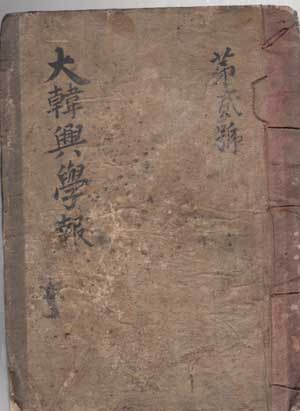 第貳號
大韓興學報